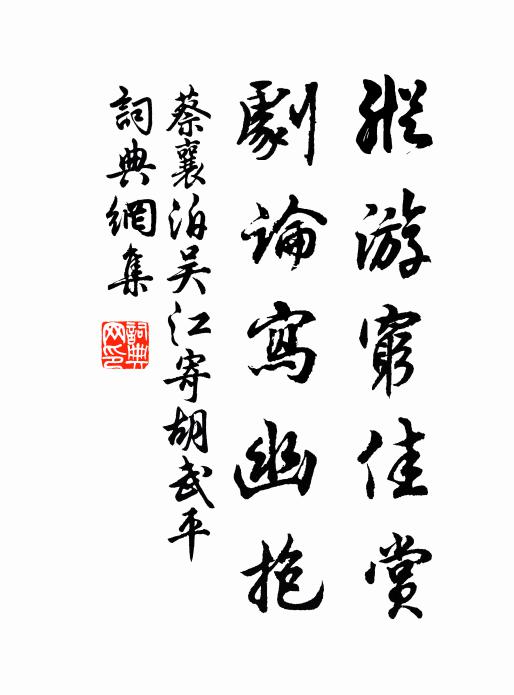 縱游窮佳賞
劇論寫幽抱
蔡襄泊吴江寄胡武平
詞典網集
詞典
网印